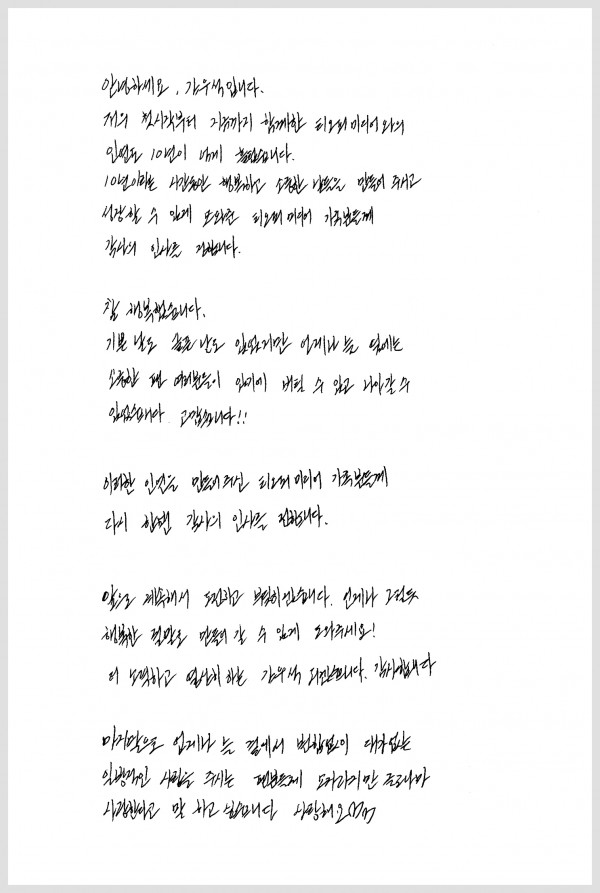 안녕하세요, 김우석입니다.
저의 첫시작부터 지금까지 함께한 티오피미디어와의
인연도 10년이 넘게 흘렀습니다.
10년이라는 시간동안 행복하고 소중한 날들을 만들어 주시고
성장할 수 있게 도와준 티오피미디어 가족분들께
감사의 인사를 전합니다.
참 행복했습니다.
기쁜 날도 슬픈 날도 있었지만 언제나 늘 옆에는
소중한 팬 여러분들이 있기에 버틸 수 있고 나아갈 수
있었습니다 고맙습니다!!
이러한 인연을 만들어주신 티오피미디어 가족분들께
다시 한번 감사의 인사를 전합니다.
앞으로 계속해서 도전하고 부딪히겠습니다. 언제나 그랬듯
행복한 결말로 만들어 갈 수 있게 도와주세요!
더 노력하고 열심히 하는 김우석 되겠습니다. 감사합니다
마지막으로 언제나 늘 곁에서 변함없이 대가없는
일방적인 사랑을 주시는 팬분들께 모자라지만 조금이나마
사랑한다고 말 하고 싶습니다 사랑해요